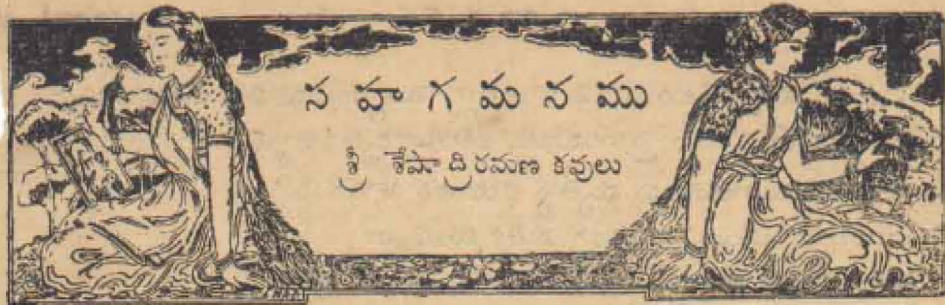 సహగమనము
శ్రీ శేషాద్రిరమణ కవులు